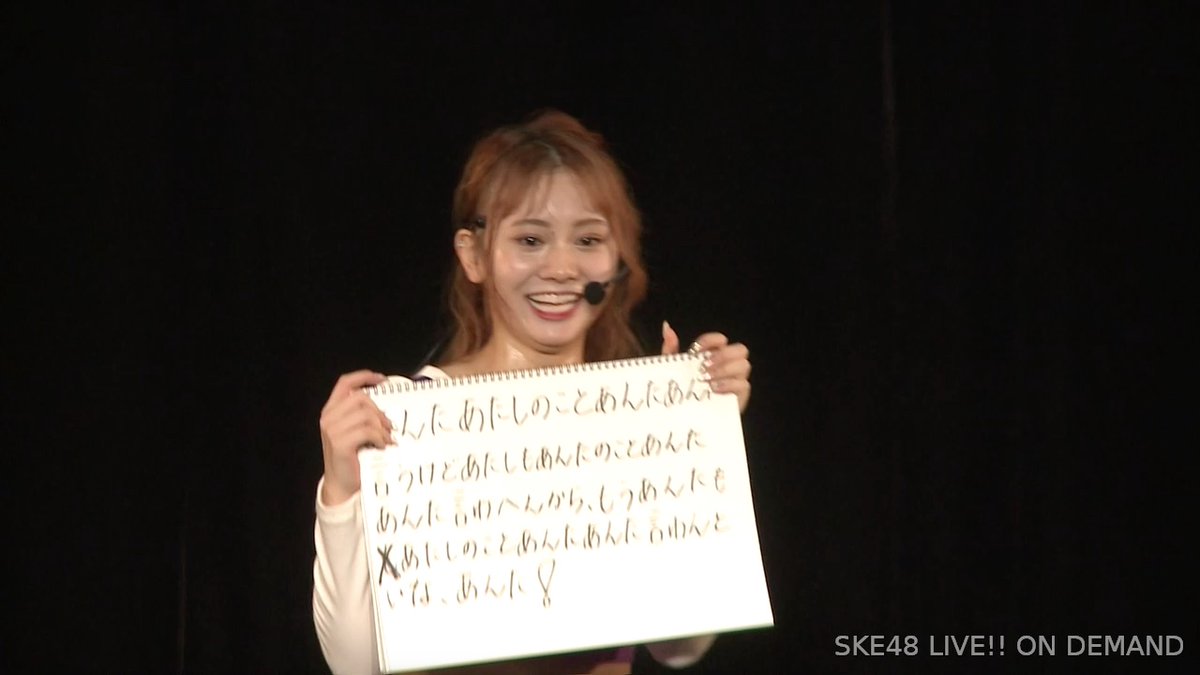 あんたあたしのことあんたあんた
言うけどあたしもあんたのことあんた
あんた言わへんから、もうあんたも
あたしのことあんたあんた言わんと
いな、あんた!
SKE48 LIVE!! ON DEMAND